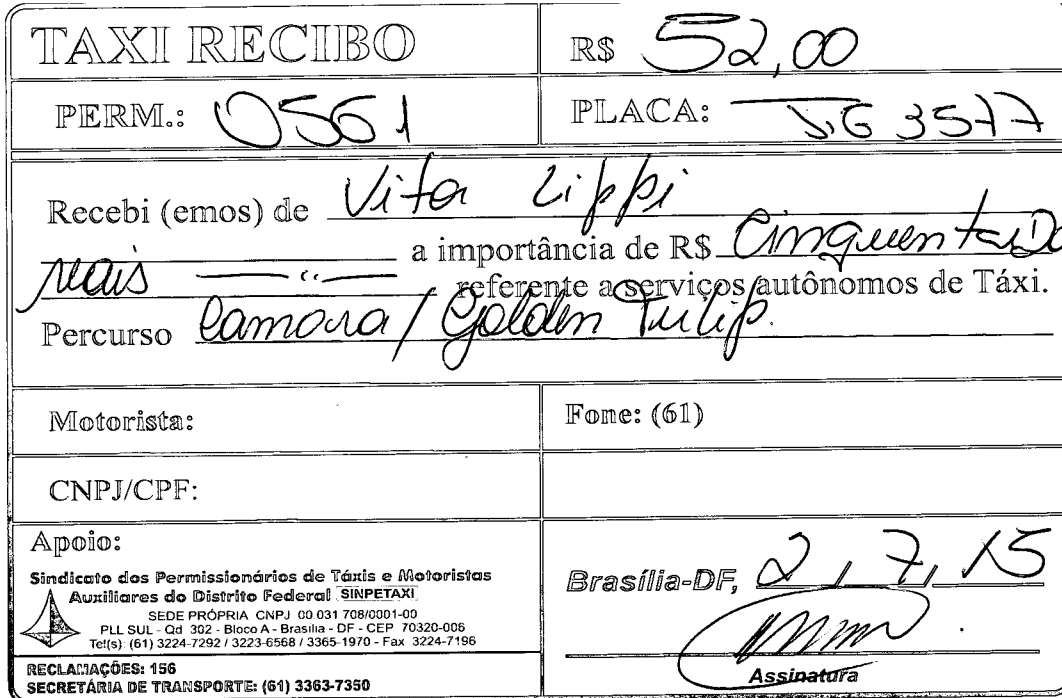 TAXI RECIBO
R$ 52,00
PERM.: 0561
PLACA: JJG 3577
Recebi (emos) de Vitor Lippi
a importância de R$ Cinquenta Do
reais referente a serviços autônomos de Táxi.
Percurso Camara / Golden Tulip.
Motorista:
Fone: (61)
CNPJ/CPF:
Apoio:
Sindicato dos Permissionários de Táxis e Motoristas
Auxiliares do Distrito Federal SINPETAXI
SEDE PRÓPRIA CNPJ 00 031 708/0001-00
PLL SUL - Qd 302 - Bloco A - Brasília - DF - CEP 70320-006
Tel(s): (61) 3224-7292 / 3223-6568 / 3365-1970 - Fax 3224-7196
RECLAMAÇÕES: 156
SECRETÁRIA DE TRANSPORTE: (61) 3363-7350
Brasília-DF, 2 / 7 / 15
Assinatura